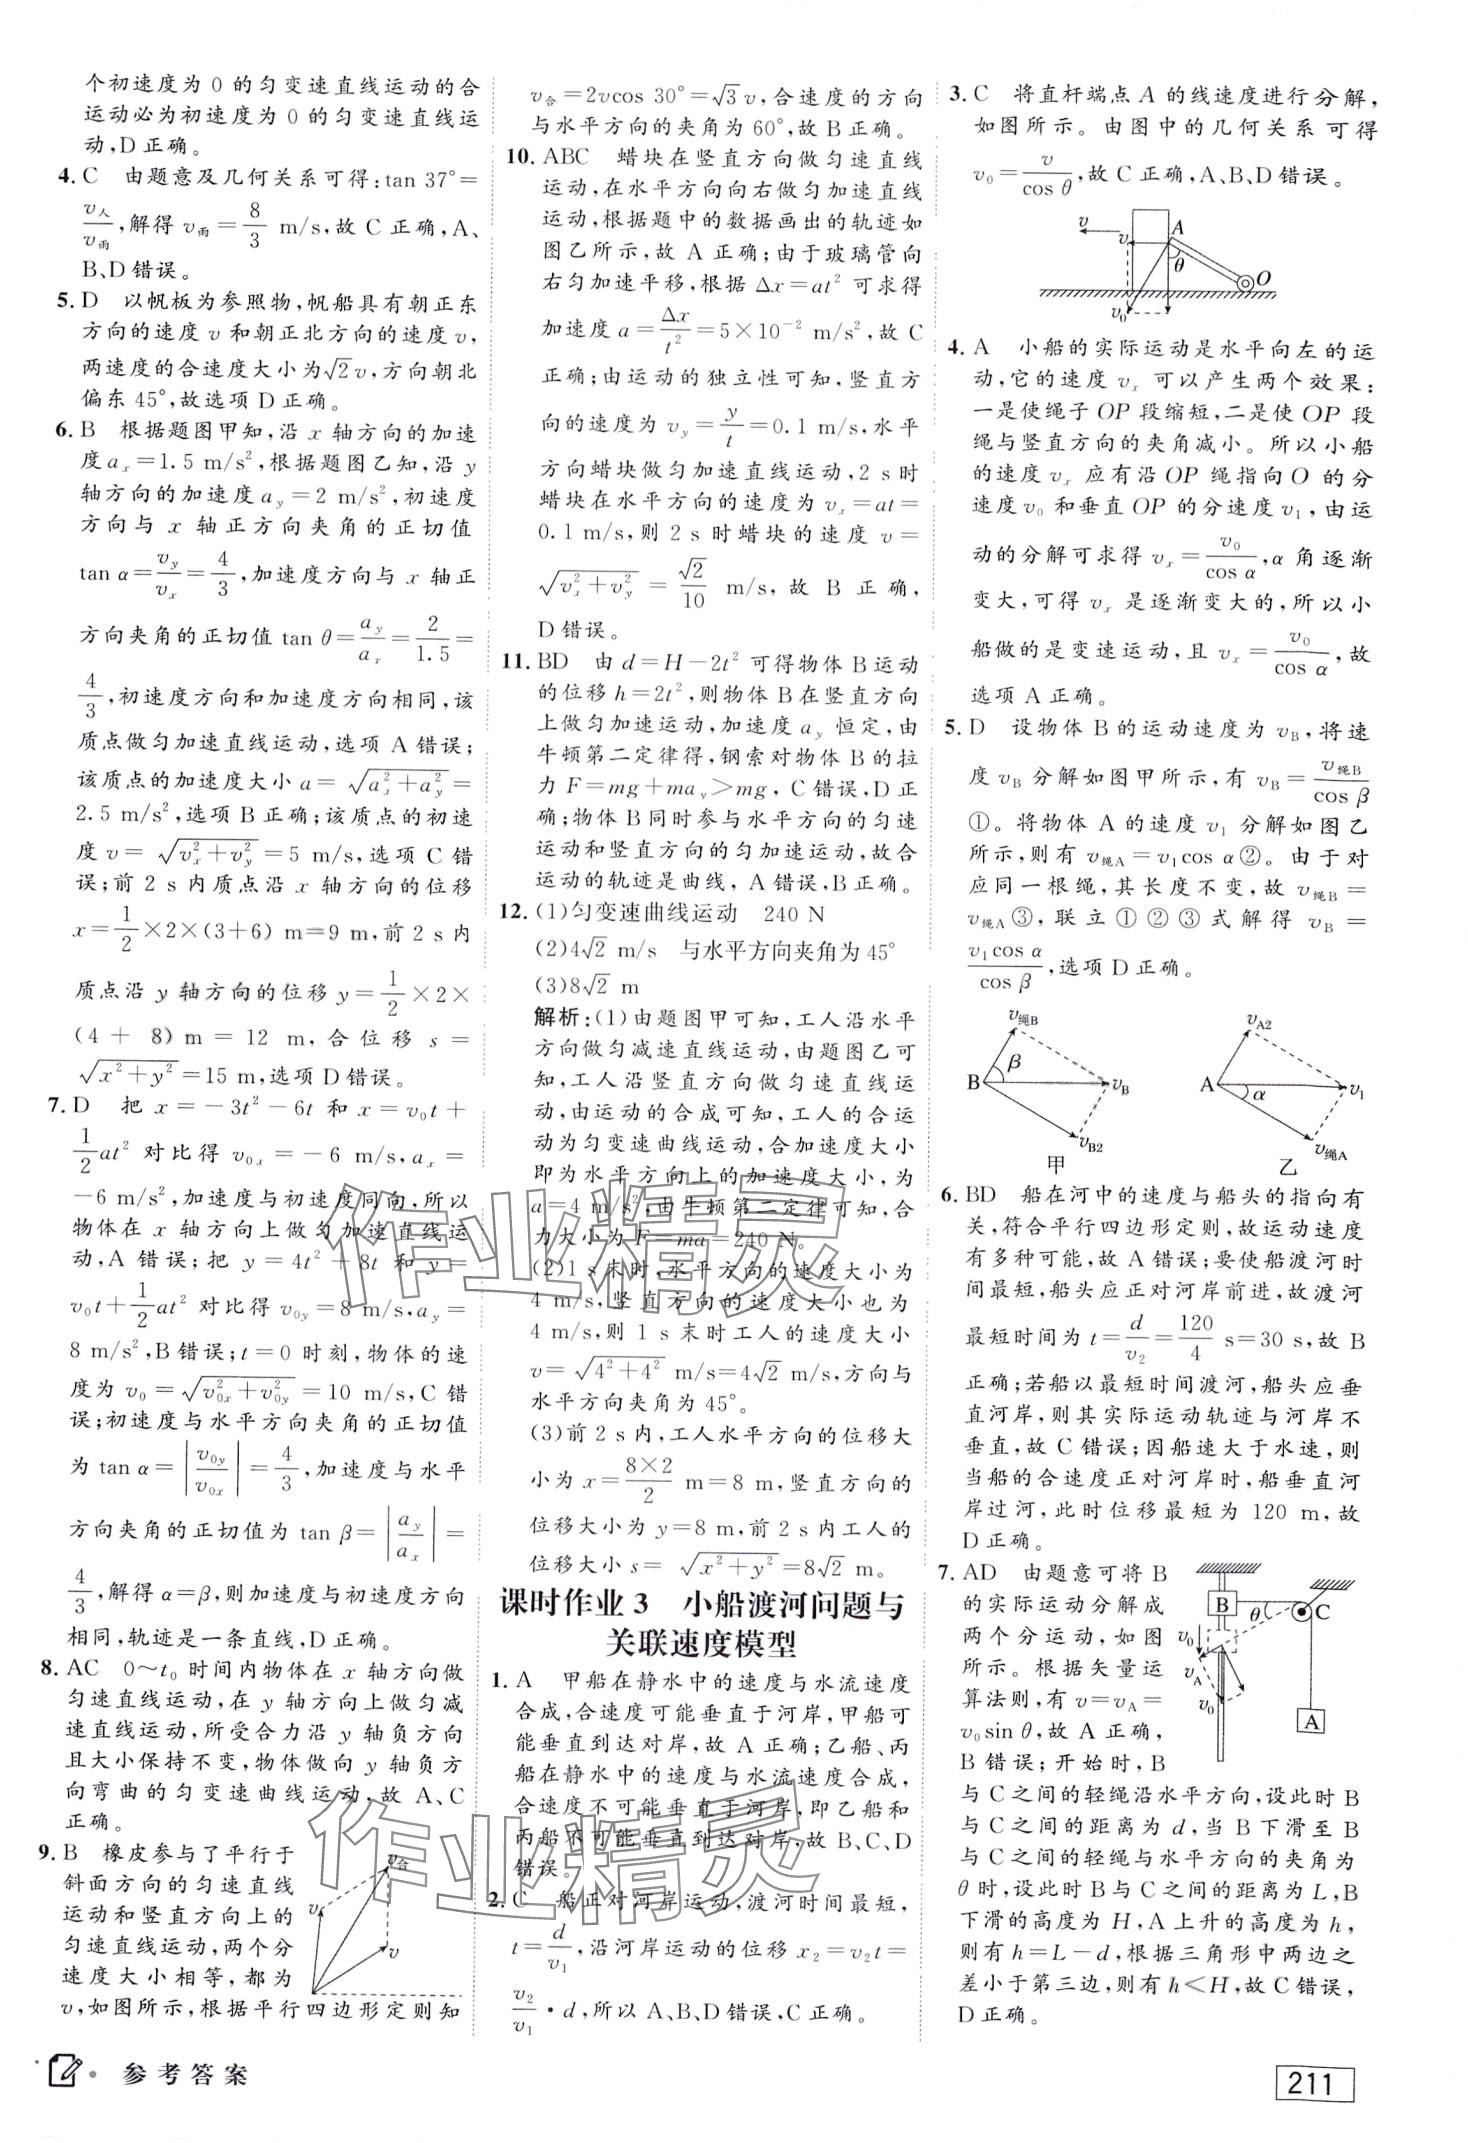 个初速度为 0 的匀变速直线运动的合
运动必为初速度为 0 的匀变速直线运
动,D 正确。
4. C　由题意及几何关系可得:tan 37°=
v人/v雨,解得 v雨=8/3 m/s,故 C 正确,A、
B、D 错误。
5. D　以帆板为参照物,帆船具有朝正东
方向的速度 v 和朝正北方向的速度 v,
两速度的合速度大小为√2v,方向朝北
偏东 45°,故选项 D 正确。
6. B　根据题图甲知,沿 x 轴方向的加速
度aₓ=1.5 m/s²,根据题图乙知,沿 y
轴方向的加速度 a_y=2 m/s²,初速度
方向与 x 轴正方向夹角的正切值
tan α=v_y/vₓ=4/3,加速度方向与 x 轴正
方向夹角的正切值 tan θ=a_y/aₓ=2/1.5=
4/3,初速度方向和加速度方向相同,该
质点做匀加速直线运动,选项 A 错误;
该质点的加速度大小 a=√(aₓ²+a_y²)=
2.5 m/s²,选项 B 正确;该质点的初速
度 v=√(vₓ²+v_y²)=5 m/s,选项 C 错
误;前 2 s 内质点沿 x 轴方向的位移
x=1/2×2×(3+6) m=9 m,前 2 s 内
质点沿 y 轴方向的位移 y=1/2×2×
(4+8) m=12 m,合位移 s=
√(x²+y²)=15 m,选项 D 错误。
7. D　把 x=-3t²-6t 和 x=v₀t+
1/2at² 对比得 v₀ₓ=-6 m/s,aₓ=
-6 m/s²,加速度与初速度同向,所以
物体在 x 轴方向上做匀加速直线运
动,A 错误;把 y=4t²+8t 和 y=
v₀t+1/2at² 对比得 v₀y=8 m/s,a_y=
8 m/s²,B 错误;t=0 时刻,物体的速
度为 v₀=√(v₀ₓ²+v₀y²)=10 m/s,C 错
误;初速度与水平方向夹角的正切值
为 tan α=|v₀y/v₀ₓ|=4/3,加速度与水平
方向夹角的正切值为 tan β=|a_y/aₓ|=
4/3,解得 α=β,则加速度与初速度方向
相同,轨迹是一条直线,D 正确。
8. AC　0～t₀ 时间内物体在 x 轴方向做
匀速直线运动,在 y 轴方向上做匀减
速直线运动,所受合力沿 y 轴负方向
且大小保持不变,物体做向 y 轴负方
向弯曲的匀变速曲线运动,故 A、C
正确。
9. B　橡皮参与了平行于
斜面方向的匀速直线
运动和竖直方向上的
匀速直线运动,两个分
速度大小相等,都为
v,如图所示,根据平行四边形定则知
v合
v
v
v合=2vcos 30°=√3v,合速度的方向
与水平方向的夹角为 60°,故 B 正确。
10. ABC　蜡块在竖直方向做匀速直线
运动,在水平方向向右做匀加速直线
运动,根据题中的数据画出的轨迹如
图乙所示,故 A 正确;由于玻璃管向
右匀加速平移,根据 Δx=at² 可求得
加速度 a=Δx/t²=5×10⁻² m/s²,故 C
正确;由运动的独立性可知,竖直方
向的速度为 v_y=y/t=0.1 m/s,水平
方向蜡块做匀加速直线运动,2 s 时
蜡块在水平方向的速度为 vₓ=at=
0.1 m/s,则 2 s 时蜡块的速度 v=
√(vₓ²+v_y²)=√2/10 m/s,故 B 正确,
D 错误。
11. BD　由 d=H-2t² 可得物体 B 运动
的位移 h=2t²,则物体 B 在竖直方向
上做匀加速运动,加速度 a_y 恒定,由
牛顿第二定律得,钢索对物体 B 的拉
力 F=mg+ma_y>mg,C 错误,D 正
确;物体 B 同时参与水平方向的匀速
运动和竖直方向的匀加速运动,故合
运动的轨迹是曲线,A 错误,B 正确。
12. (1)匀变速曲线运动　240 N
(2)4√2 m/s　与水平方向夹角为 45°
(3)8√2 m
解析:(1)由题图甲可知,工人沿水平
方向做匀减速直线运动,由题图乙可
知,工人沿竖直方向做匀速直线运
动,由运动的合成可知,工人的合运
动为匀变速曲线运动,合加速度大小
即为水平方向上的加速度大小,为
a=4 m/s²,由牛顿第二定律可知,合
力大小为 F=ma=240 N。
(2)1 s 末时,水平方向的速度大小为
4 m/s,竖直方向的速度大小也为
4 m/s,则 1 s 末时工人的速度大小
v=√(4²+4²) m/s=4√2 m/s,方向与
水平方向夹角为 45°。
(3)前 2 s 内,工人水平方向的位移大
小为 x=8×2/2 m=8 m,竖直方向的
位移大小为 y=8 m,前 2 s 内工人的
位移大小 s=√(x²+y²)=8√2 m。
课时作业 3　小船渡河问题与
关联速度模型
1. A　甲船在静水中的速度与水流速度
合成,合速度可能垂直于河岸,甲船可
能垂直到达对岸,故 A 正确;乙船、丙
船在静水中的速度与水流速度合成,
合速度不可能垂直于河岸,即乙船和
丙船不可能垂直到达对岸,故 B、C、D
错误。
2. C　船正对河岸运动,渡河时间最短,
t=d/v₁,沿河岸运动的位移 x₂=v₂t=
v₂/v₁·d,所以 A、B、D 错误,C 正确。
3. C　将直杆端点 A 的线速度进行分解,
如图所示。由图中的几何关系可得
v₀=v/cos θ,故 C 正确,A、B、D 错误。
v
v
A
θ
O
v₀
4. A　小船的实际运动是水平向左的运
动,它的速度 vₓ 可以产生两个效果:
一是使绳子 OP 段缩短,二是使 OP 段
绳与竖直方向的夹角减小。所以小船
的速度 vₓ 应有沿 OP 绳指向 O 的分
速度 v₀ 和垂直 OP 的分速度 v₁,由运
动的分解可求得 vₓ=v₀/cos α,α 角逐渐
变大,可得 vₓ 是逐渐变大的,所以小
船做的是变速运动,且 vₓ=v₀/cos α,故
选项 A 正确。
5. D　设物体 B 的运动速度为 vB,将速
度 vB 分解如图甲所示,有 vB=v绳B/cos β
①。将物体 A 的速度 v₁ 分解如图乙
所示,则有 v绳A=v₁cos α②。由于对
应同一根绳,其长度不变,故 v绳B=
v绳A③,联立①②③式解得 vB=
v₁cos α/cos β,选项 D 正确。
v绳B
B
β
vB
vB2
甲
vA2
A
α
v₁
v绳A
乙
6. BD　船在河中的速度与船头的指向有
关,符合平行四边形定则,故运动速度
有多种可能,故 A 错误;要使船渡河时
间最短,船头应正对河岸前进,故渡河
最短时间为 t=d/v₂=120/4 s=30 s,故 B
正确;若船以最短时间渡河,船头应垂
直河岸,则其实际运动轨迹与河岸不
垂直,故 C 错误;因船速大于水速,则
当船的合速度正对河岸时,船垂直河
岸过河,此时位移最短为 120 m,故
D 正确。
7. AD　由题意可将 B
的实际运动分解成
两个分运动,如图
所示。根据矢量运
算法则,有 v=vA=
v₀sin θ,故 A 正确,
B 错误;开始时,B
B
θ
C
v₀
vA
v₀
A
与 C 之间的轻绳沿水平方向,设此时 B
与 C 之间的距离为 d,当 B 下滑至 B
与 C 之间的轻绳与水平方向的夹角为
θ 时,设此时 B 与 C 之间的距离为 L,B
下滑的高度为 H,A 上升的高度为 h,
则有 h=L-d,根据三角形中两边之
差小于第三边,则有 h<H,故 C 错误,
D 正确。
参考答案
211
作业精灵
作业精灵